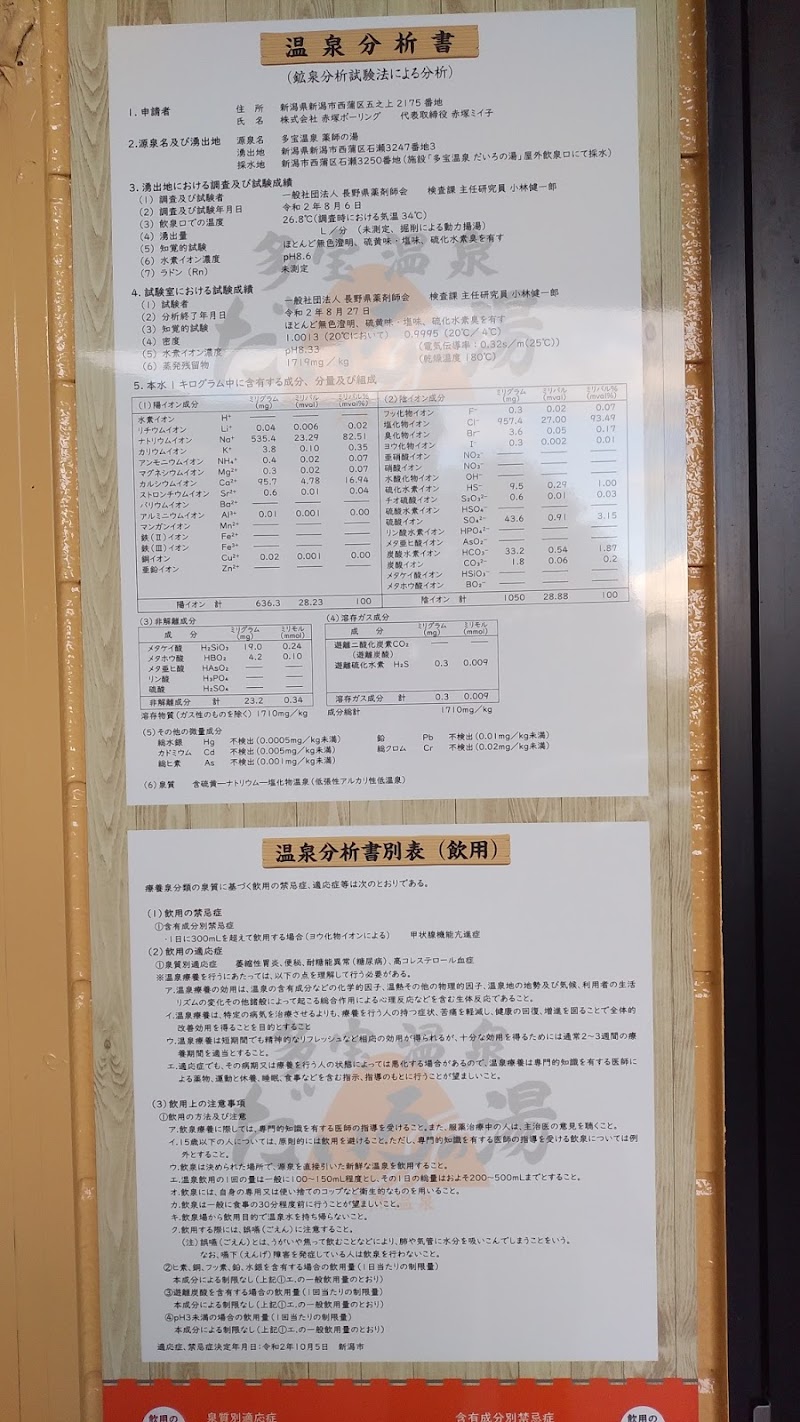 温泉分析書
(鉱泉分析試験法による分析)
1. 申請者 住所 新潟県新潟市西蒲区五之上 2175 番地
氏名 株式会社 赤塚ボーリング 代表取締役 赤塚ミイ子
2.源泉名及び湧出地 源泉名 多宝温泉 薬師の湯
湧出地 新潟県新潟市西蒲区石瀬3247番地3
採水地 新潟市西蒲区石瀬3250番地(施設「多宝温泉 だいろの湯」屋外飲泉口にて採水)
3. 湧出地における調査及び試験成績
(1) 調査及び試験者 一般社団法人 長野県薬剤師会 検査課 主任研究員 小林健一郎
(2) 調査及び試験年月日 令和 2 年 8 月 6 日
(3) 飲泉口での温度 26.8℃(調査時における気温 34℃)
(4) 湧出量 L/分 (未測定、掘削による動力揚湯)
(5) 知覚的試験 ほとんど無色澄明、硫黄味・塩味、硫化水素臭を有す
(6) 水素イオン濃度 pH8.6
(7) ラドン (Rn) 未測定
4. 試験室における試験成績
(1) 試験者 一般社団法人 長野県薬剤師会 検査課 主任研究員 小林健一郎
(2) 分析終了年月日 令和 2 年 8 月 27 日
(3) 知覚的試験 ほとんど無色澄明、硫黄味・塩味、硫化水素臭を有す
(4) 密度 1.0013 (20℃において) 0.9995 (20℃/4℃)
(5) 水素イオン濃度 pH8.33 (電気伝導率:0.32s/m(25℃))
(6) 蒸発残留物 1719mg/kg (乾燥温度 180℃)
5. 本水 1 キログラム中に含有する成分、分量及び組成
(1)陽イオン成分 ミリグラム(mg) ミリバル(mval) ミリバル%(mval%)
水素イオン H⁺ — — —
リチウムイオン Li⁺ 0.04 0.006 0.02
ナトリウムイオン Na⁺ 535.4 23.29 82.51
カリウムイオン K⁺ 3.8 0.10 0.35
アンモニウムイオン NH₄⁺ 0.4 0.02 0.07
マグネシウムイオン Mg²⁺ 0.3 0.02 0.07
カルシウムイオン Ca²⁺ 95.7 4.78 16.94
ストロンチウムイオン Sr²⁺ 0.6 0.01 0.04
バリウムイオン Ba²⁺ — — —
アルミニウムイオン Al³⁺ 0.01 0.001 0.00
マンガンイオン Mn²⁺ — — —
鉄(Ⅱ)イオン Fe²⁺ — — —
鉄(Ⅲ)イオン Fe³⁺ — — —
銅イオン Cu²⁺ 0.02 0.001 0.00
亜鉛イオン Zn²⁺ — — —
陽イオン 計 636.3 28.23 100
(2)陰イオン成分 ミリグラム(mg) ミリバル(mval) ミリバル%(mval%)
フッ化物イオン F⁻ 0.3 0.02 0.07
塩化物イオン Cl⁻ 957.4 27.00 93.49
臭化物イオン Br⁻ 3.6 0.05 0.17
ヨウ化物イオン I⁻ 0.3 0.002 0.01
亜硝酸イオン NO₂⁻ — — —
硝酸イオン NO₃⁻ — — —
水酸化物イオン OH⁻ — — —
硫化水素イオン HS⁻ 9.5 0.29 1.00
チオ硫酸イオン S₂O₃²⁻ 0.6 0.01 0.03
硫酸水素イオン HSO₄⁻ — — —
硫酸イオン SO₄²⁻ 43.6 0.91 3.15
リン酸水素イオン HPO₄²⁻ — — —
メタ亜ヒ酸イオン AsO₂⁻ — — —
炭酸水素イオン HCO₃⁻ 33.2 0.54 1.87
炭酸イオン CO₃²⁻ 1.8 0.06 0.2
メタケイ酸イオン HSiO₃⁻ — — —
メタホウ酸イオン BO₂⁻ — — —
陰イオン 計 1050 28.88 100
(3)非解離成分
成分 ミリグラム(mg) ミリモル(mmol)
メタケイ酸 H₂SiO₃ 19.0 0.24
メタホウ酸 HBO₂ 4.2 0.10
メタ亜ヒ酸 HAsO₂ — —
リン酸 H₃PO₄ — —
硫酸 H₂SO₄ — —
非解離成分 計 23.2 0.34
(4)溶存ガス成分
成分 ミリグラム(mg) ミリモル(mmol)
遊離二酸化炭素CO₂ — —
(遊離炭酸)
遊離硫化水素 H₂S 0.3 0.009
溶存ガス成分 計 0.3 0.009
溶存物質(ガス性のものを除く) 1710mg/kg 成分総計 1710mg/kg
(5)その他の微量成分
総水銀 Hg 不検出(0.0005mg/kg未満) 鉛 Pb 不検出(0.01mg/kg未満)
カドミウム Cd 不検出(0.005mg/kg未満) 総クロム Cr 不検出(0.02mg/kg未満)
総ヒ素 As 不検出(0.001mg/kg未満)
(6)泉質 含硫黄—ナトリウム—塩化物温泉(低張性アルカリ性低温泉)
多宝温泉
だいろの湯
温泉分析書別表(飲用)
療養泉分類の泉質に基づく飲用の禁忌症、適応症等は次のとおりである。
(1)飲用の禁忌症
①含有成分別禁忌症
・1日に300mLを超えて飲用する場合(ヨウ化物イオンによる) 甲状腺機能亢進症
(2)飲用の適応症
①泉質別適応症 萎縮性胃炎、便秘、耐糖能異常(糖尿病)、高コレステロール血症
※温泉療養を行うにあたっては、以下の点を理解して行う必要がある。
ア.温泉療養の効用は、温泉の含有成分などの化学的因子、温熱その他の物理的因子、温泉地の地勢及び気候、利用者の生活
リズムの変化その他諸般によって起こる総合作用による心理反応などを含む生体反応であること。
イ.温泉療養は、特定の病気を治療させるよりも、療養を行う人の持つ症状、苦痛を軽減し、健康の回復、増進を図ることで全体的
改善効用を得ることを目的とすること
ウ.温泉療養は短期間でも精神的なリフレッシュなど相応の効用が得られるが、十分な効用を得るためには通常2~3週間の療
養期間を適当とすること。
エ.適応症でも、その病期又は療養を行う人の状態によっては悪化する場合があるので、温泉療養は専門的知識を有する医師に
よる薬物、運動と休養、睡眠、食事などを含む指示、指導のもとに行うことが望ましいこと。
多宝温泉
だいろの湯
(3)飲用上の注意事項
①飲用の方法及び注意
ア.飲泉療養に際しては、専門的知識を有する医師の指導を受けること。また、服薬治療中の人は、主治医の意見を聴くこと。
イ.15歳以下の人については、原則的には飲用を避けること。ただし、専門的知識を有する医師の指導を受ける飲泉については例
外とすること。
ウ.飲泉は決められた場所で、源泉を直接引いた新鮮な温泉を飲用すること。
エ.温泉飲用の1回の量は一般に100~150mL程度とし、その1日の総量はおよそ200~500mLまでとすること。
オ.飲泉には、自身の専用又は使い捨てのコップなど衛生的なものを用いること。
カ.飲泉は一般に食事の30分程度前に行うことが望ましいこと。
キ.飲泉場から飲用目的で温泉水を持ち帰らないこと。
ク.飲用する際には、誤嚥(ごえん)に注意すること。
(注)誤嚥(ごえん)とは、うがいや焦って飲むことなどにより、肺や気管に水分を吸いこんでしまうことをいう。
なお、嚥下(えんげ)障害を発症している人は飲泉を行わないこと。
②ヒ素、銅、フッ素、鉛、水銀を含有する場合の飲用量(1日当たりの制限量)
本成分による制限なし(上記①エ.の一般飲用量のとおり)
③遊離炭酸を含有する場合の飲用量(1回当たりの制限量)
本成分による制限なし(上記①エ.の一般飲用量のとおり)
④pH3未満の場合の飲用量(1回当たりの制限量)
本成分による制限なし(上記①エ.の一般飲用量のとおり)
適応症、禁忌症決定年月日:令和2年10月5日 新潟市
飲用の 泉質別適応症 含有成分別禁忌症 飲用の